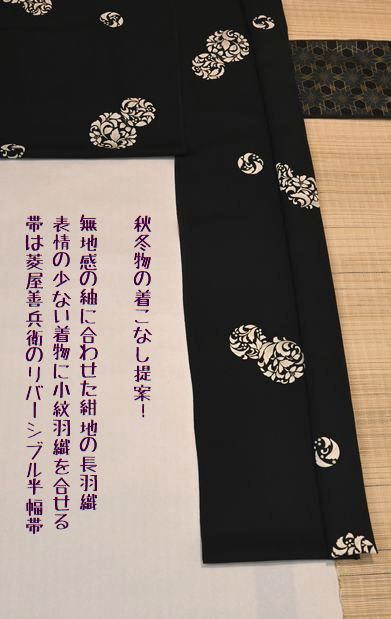 秋冬物の着こなし提案！
無地感の紬に合わせた紺地の長羽織
表情の少ない着物に小紋羽織を合せる
帯は菱屋善兵衛のリバーシブル半幅帯